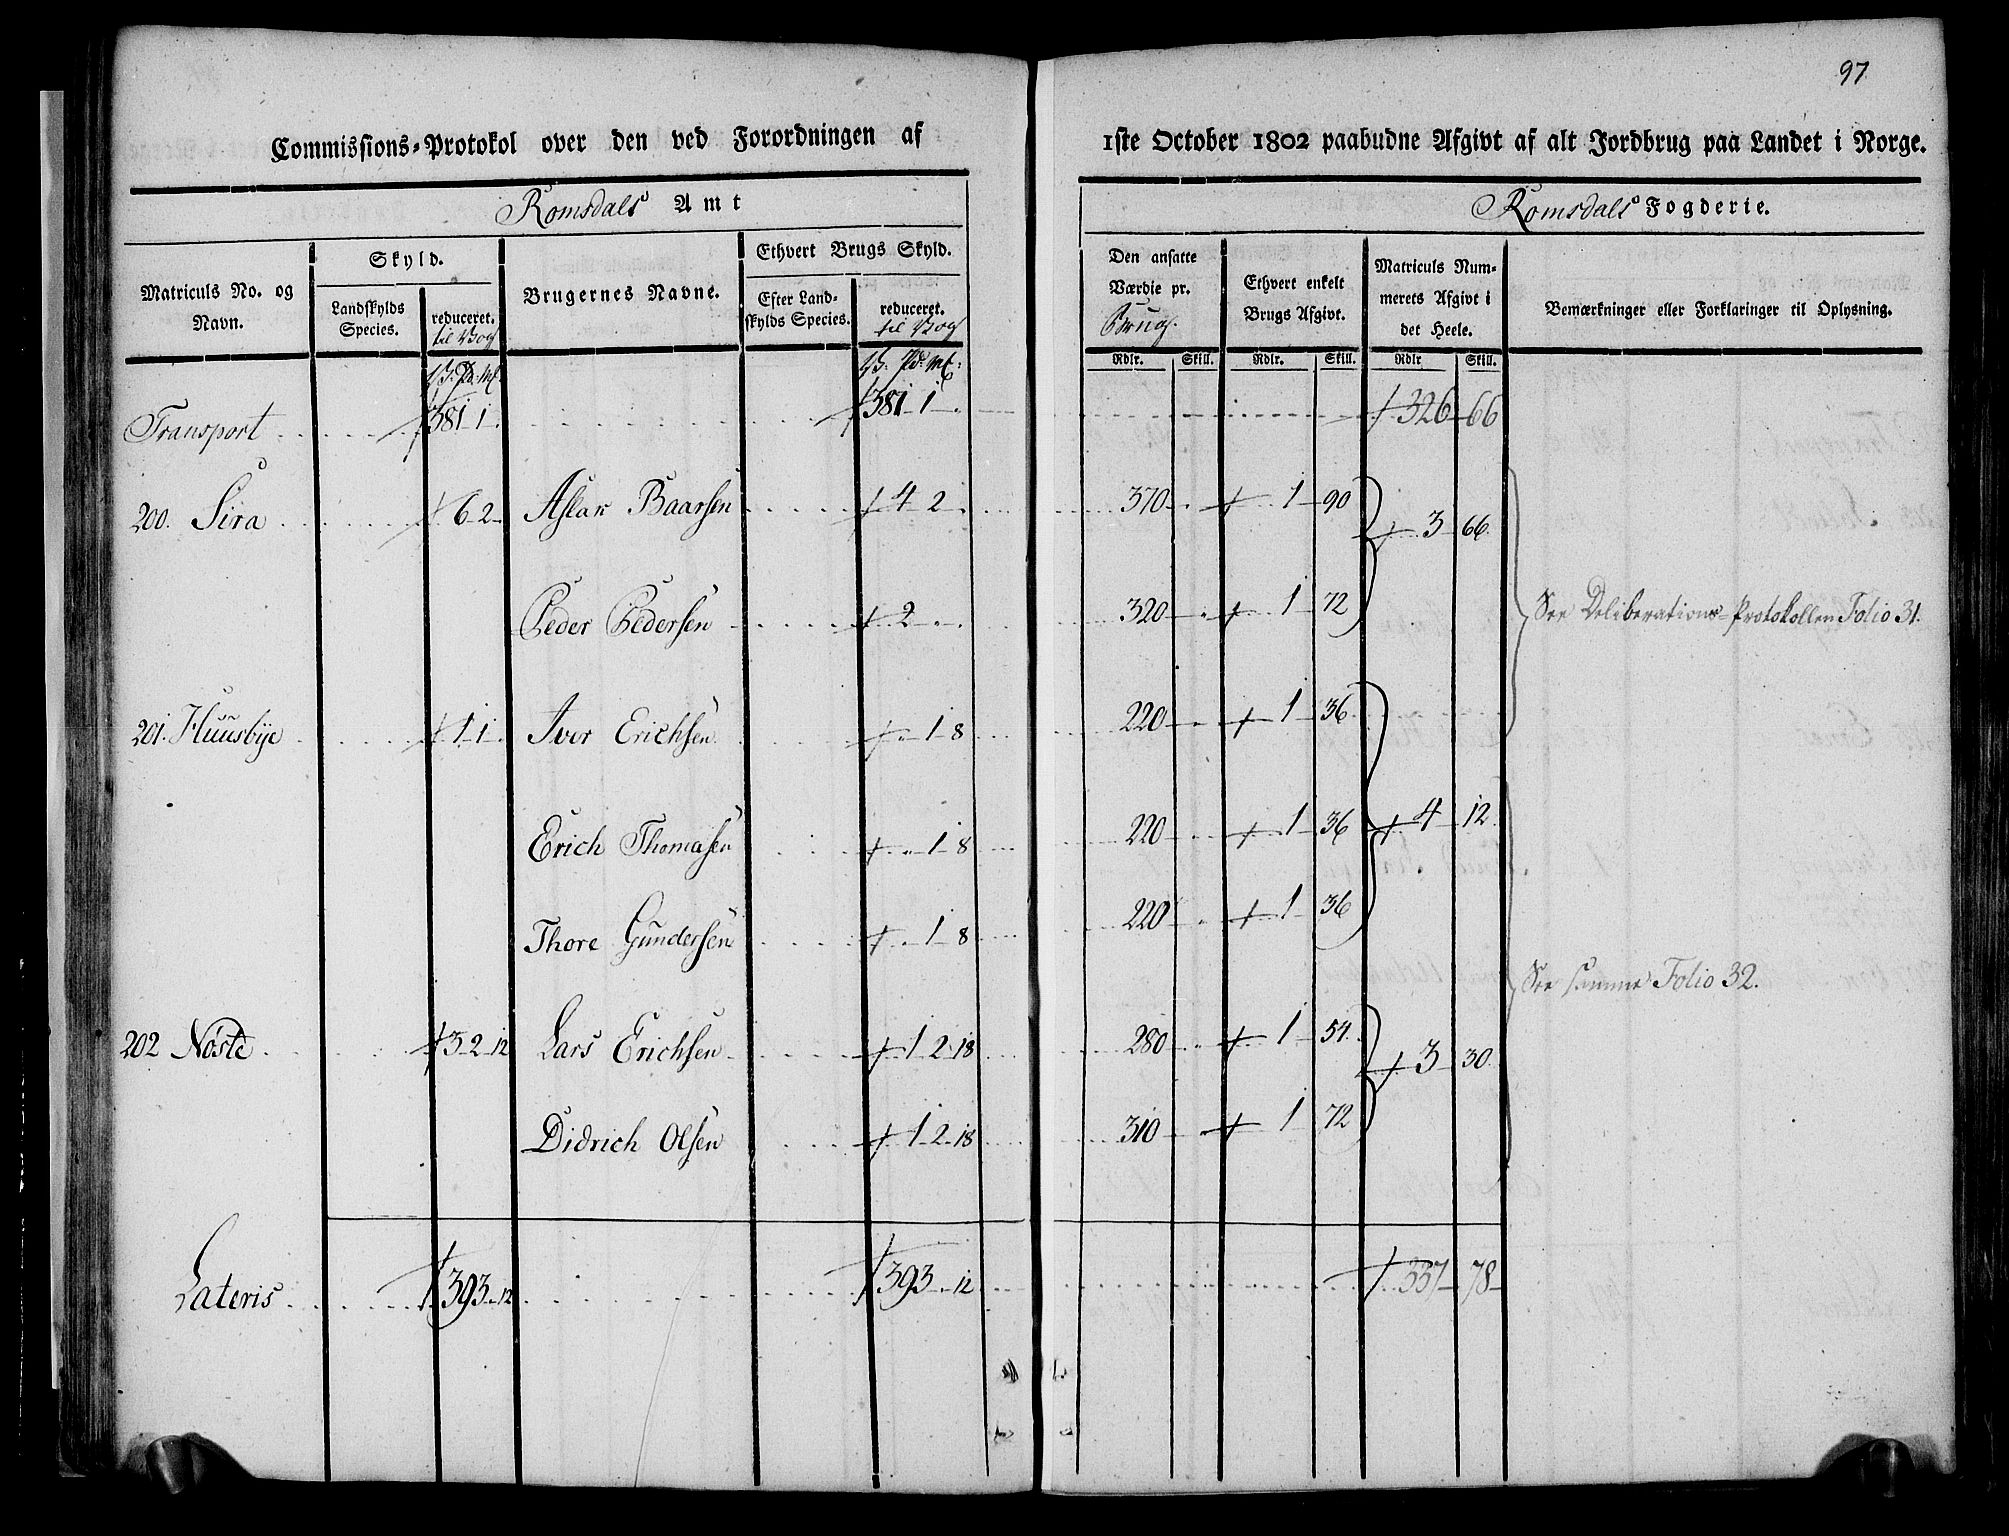 97
Commissions-Protokol over den ved Forordningen af 1ste October 1802 paabudne Afgivt af alt Jordbrug paa Landet i Norge.
Romsdals Amt
Romsdals Fogderie.
Matriculs No. og Navn.
Skyld.
Landskylds Species.
reduceret. til Vog
Brugernes Navne.
Ethvert Brugs Skyld.
Efter Landskylds Species.
reduceret. til Vog
Den ansatte Værdie pr. Brug.
Ethvert enkelt Brugs Afgivt.
Matriculs Nummerets Afgivt i det Heele.
Bemærkninger eller Forklaringer til Oplysning.
V: Pd: Mk: V: Pd: Mk: Rdlr. Skill. Rdlr. Skill. Rdlr Skill.
Transport 381 1 381 1 326 66
200. Sira 6 2 Aslak Baarsen 4 2 370 1 90 3 66
Peder Pedersen 2 320 1 72 See Deliberations-Protokollen Folio 31.
201. Huusbye 1 1 Iver Erichsen 1 8 220 1 36
Erich Thomasen 1 8 220 1 36 4 12
Thore Gundersen 1 8 220 1 36
See samme Folio 32.
202 Nöste 3 2 12 Lars Erichsen 1 2 18 280 1 54 3 30
Didrich Olsen 1 2 18 310 1 72
Lateris 393 12 393 12 337 78